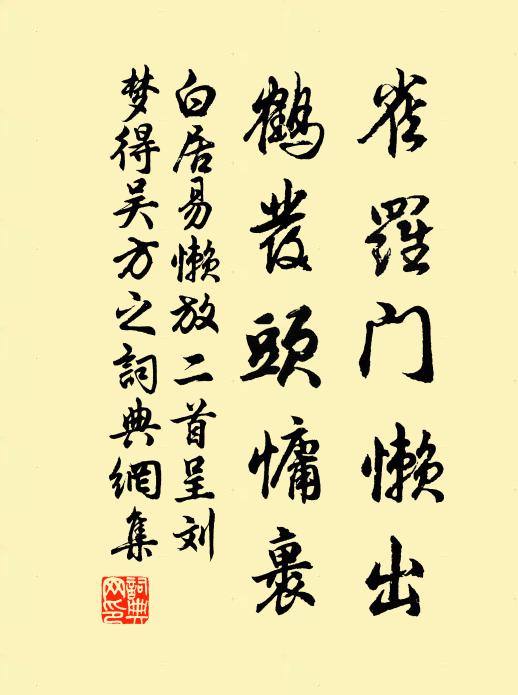 雀羅门懒出
鶴發頭慵裹
白居易懒放二首呈刘
梦得吴方之詞典網集
詞典网印